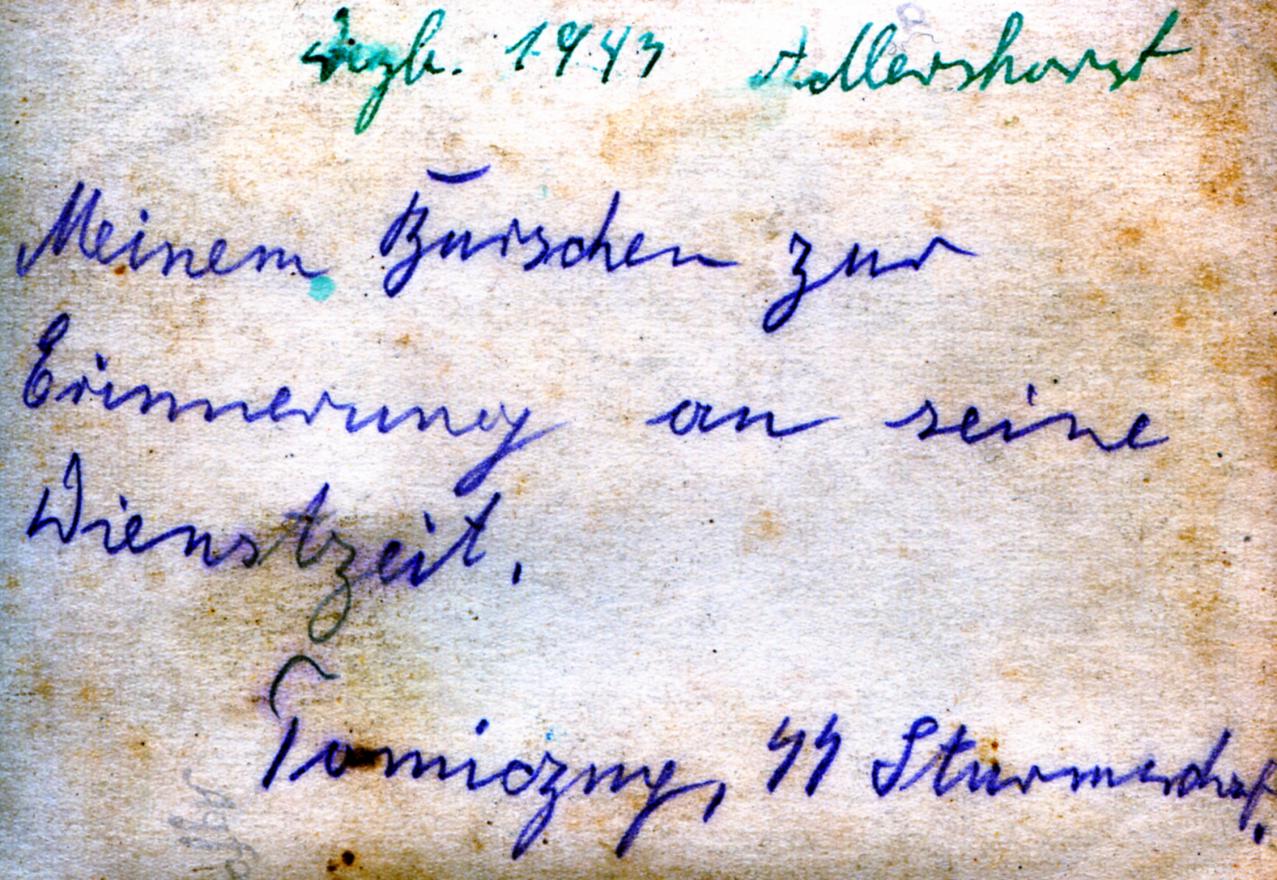 Dezb. 1943 Adlershorst
Meinem Burschen zur
Erinnerung an seine
Dienstzeit.
Tomiczny, SS Sturmscharf.